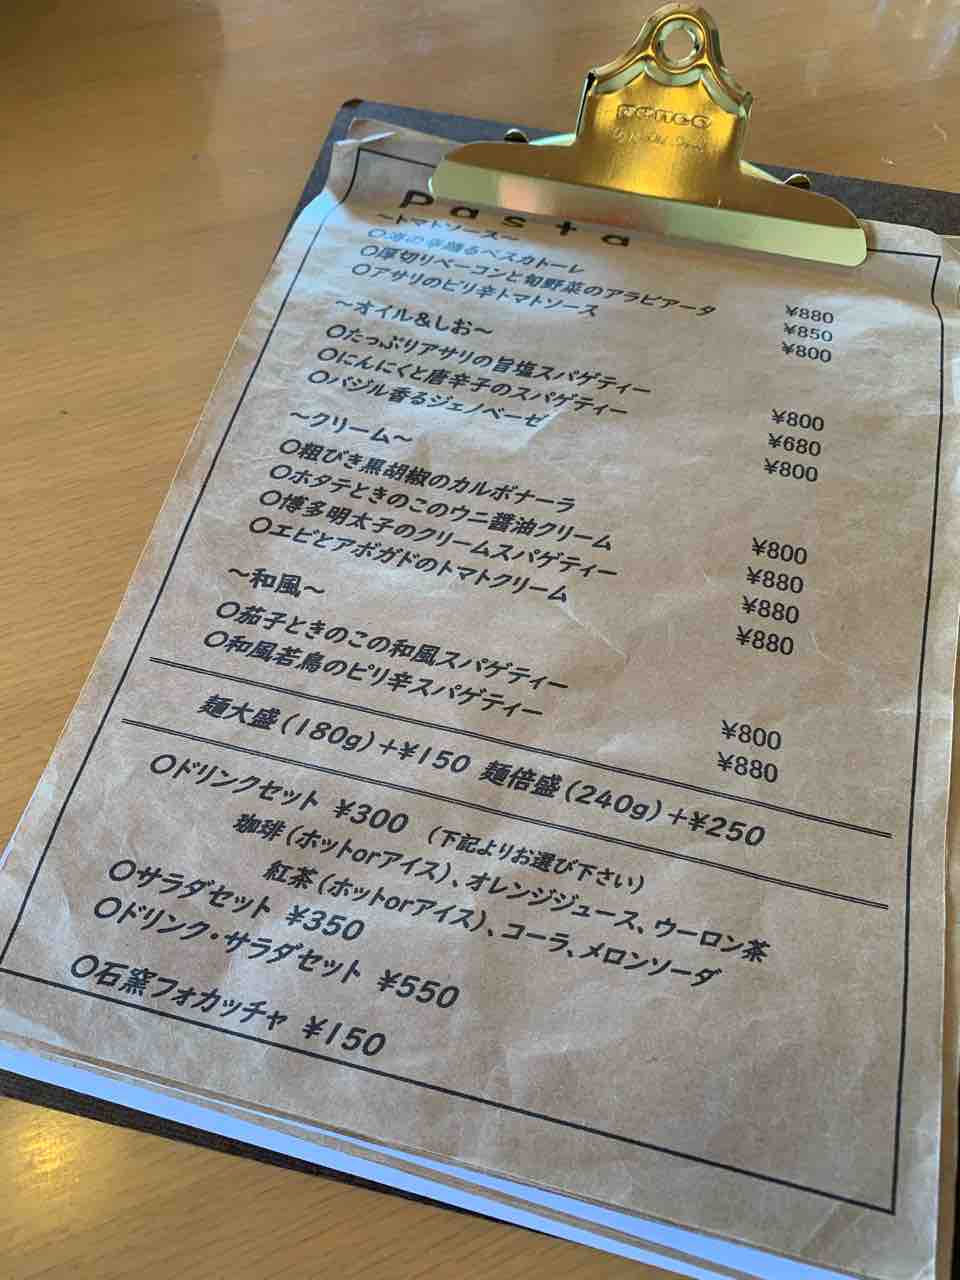 penco
pasta
~トマトソース~
〇海の幸踊るペスカトーレ ¥880
〇厚切りベーコンと旬野菜のアラビアータ ¥850
〇アサリのピリ辛トマトソース ¥800
~オイル&しお~
〇たっぷりアサリの旨塩スパゲティー ¥800
〇にんにくと唐辛子のスパゲティー ¥680
〇バジル香るジェノベーゼ ¥800
~クリーム~
〇粗びき黒胡椒のカルボナーラ ¥800
〇ホタテときのこのウニ醤油クリーム ¥880
〇博多明太子のクリームスパゲティー ¥880
〇エビとアボガドのトマトクリーム ¥880
~和風~
〇茄子ときのこの和風スパゲティー ¥800
〇和風若鳥のピリ辛スパゲティー ¥880
麺大盛(180g)+¥150 麺倍盛(240g)+¥250
〇ドリンクセット ¥300 (下記よりお選び下さい)
珈琲(ホットorアイス)、オレンジジュース、ウーロン茶
紅茶(ホットorアイス)、コーラ、メロンソーダ
〇サラダセット ¥350
〇ドリンク・サラダセット ¥550
〇石窯フォカッチャ ¥150